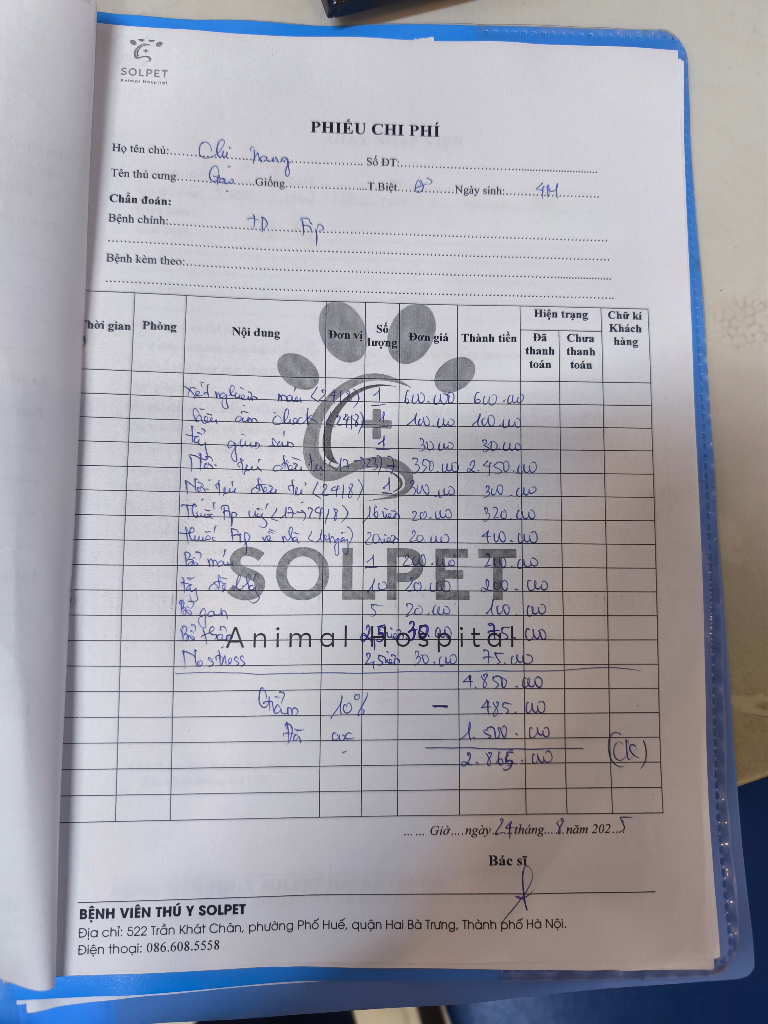 SOLPET
Animal Hospital
PHIẾU CHI PHÍ
Họ tên chủ: Chị Trang Số ĐT:
Tên thú cưng Gạo Giống T.Biệt Ngày sinh: 4M
Chẩn đoán:
Bệnh chính: TD Fip
Bệnh kèm theo:
Thời gian Phòng Nội dung Đơn vị Số lượng Đơn giá Thành tiền Hiện trạng Đã thanh toán Chưa thanh toán Chữ kí Khách hàng
Xét nghiệm máu (24/8) 1 600.000 600.000
Siêu âm check (24/8) 1 100.000 100.000
Tẩy giun sán 1 30.000 30.000
Nội trú điều trị (17→23) 7 350.000 2.450.000
Nội trú điều trị (24/8) 1 300.000 300.000
Thuốc Fip (17→24/8) 16 viên 20.000 320.000
Thuốc Fip về nhà 20 viên 20.000 400.000
Bổ máu 1 200.000 200.000
10 20.000 200.000
Bổ gan 5 20.000 100.000
Bổ 2,5 viên 30.000 75.000
No stress 2,5 viên 30.000 75.000
4.850.000
Giảm 10% - 485.000
Đã cọc 1.500.000
2.865.000 (CK)
SOLPET
Animal Hospital
Giờ ngày 24 tháng 8 năm 2025
Bác sĩ
BỆNH VIÊN THÚ Y SOLPET
Địa chỉ: 522 Trần Khát Chân, phường Phố Huế, quận Hai Bà Trưng, Thành phố Hà Nội.
Điện thoại: 086.608.5558